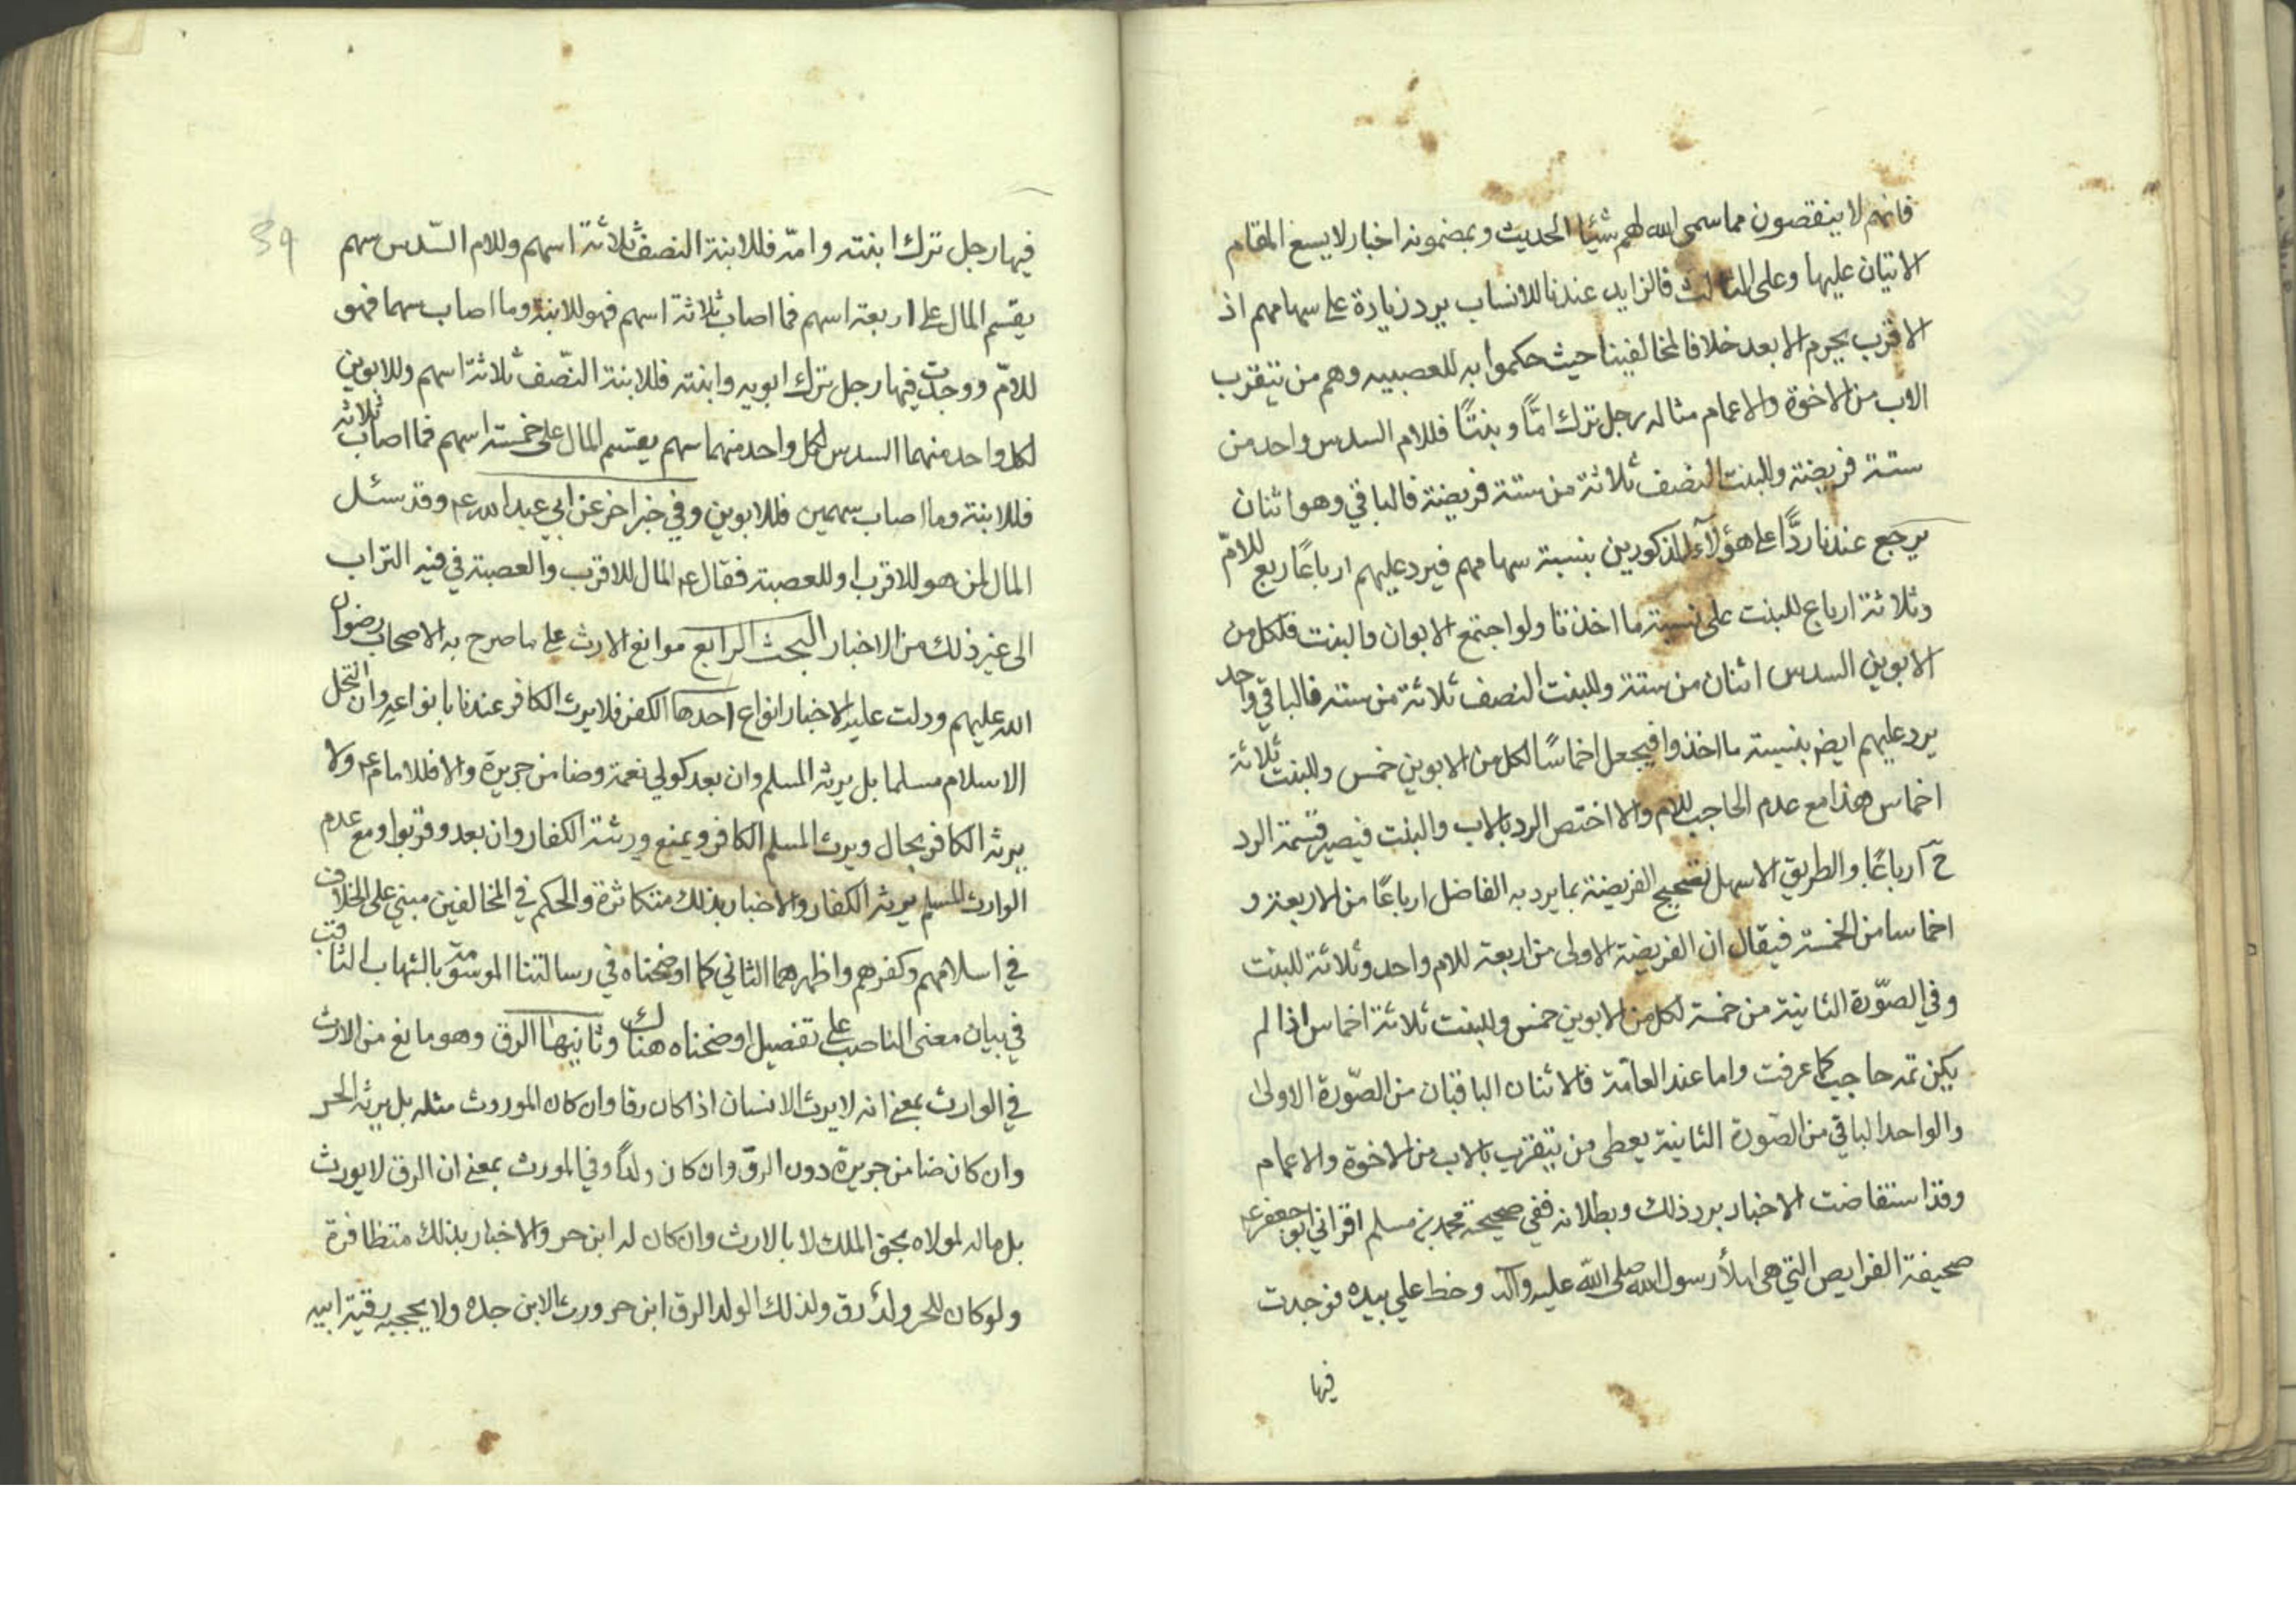 فانهم لا ينقصون مما سمى الله لهم شيئا الحديث وبمضمونه اخبار لا يسع المقام
الاتيان عليها وعلى الثالث فالزايد عندنا للانساب يرد زيادة على سهامهم اذ
الاقرب يحرم الابعد خلافا لمخالفينا حيث حكموا به للعصبيه وهم من يتقرب
الاب من الاخوة والاعمام مثاله رجل ترك امًّا وبنتًا فللام السدس واحد من
ستة فريضة وللبنت النصف ثلاثة من ستة فريضة فالباقي وهو اثنان
يرجع عندنا ردًّا على هؤلآء المذكورين بنسبة سهامهم فيرد عليهم ارباعًا ربع للامّ
وثلاثة ارباع للبنت على نسبة ما اخذتا ولو اجتمع الابوان والبنت فلكل من
الابوين السدس اثنان من ستة وللبنت النصف ثلاثة من ستة فالباقي واحد
يرد عليهم ايض بنسبة ما اخذوا فيجعل اخماسًا لكل من الابوين خمس وللبنت ثلاثة
اخماس هذا مع عدم الحاجب للام والا اختص الرد بالاب والبنت فيصير قسمة الرد
ح آرباعًا والطريق الاسهل تصحيح الفريضة بما يرد به الفاضل ارباعًا من الاربعة و
اخماسا من الخمسة فيقال ان الفريضة الاولى من اربعة للام واحد وثلاثة للبنت
وفي الصّورة الثانية من خمسة لكل من الابوين خمس وللبنت ثلاثة اخماس اذا لم
يكن ثمه حاجب كما عرفت واما عند العامّة فالاثنان الباقيان من الصّورة الاولى
والواحد الباقي من الصّورة الثانية يعطى من يتقرب بالاب من الاخوة والاعمام
وقد استفاضت الاخبار برد ذلك وبطلانه ففي صحيحة محمد بن مسلم اقراني ابو جعفر ع
صحيفة الفرايض التي هى املأ رسول الله صلى الله عليه وآله وخط علي بيده فوجدت
فيها
39
فيها رجل ترك ابنته وامّه فللابنة النصف ثلاثة اسهم وللام السّدس سهم
يقسم المال على اربعة اسهم فما اصاب ثلاثة اسهم فهو للابنة وما اصاب سهما فهو
للامّ ووجدت فيها رجل ترك ابويه وابنته فللابنة النّصف ثلاثة اسهم وللابوين
لكل واحد منهما السدس لكل واحد منهما سهم يقسم المال على خمسة اسهم فما اصاب ثلاثة
فللابنة وما اصاب سهمين فللابوين وفي خبر اخر عن ابي عبد الله ع وقد سئل
المال لمن هو للاقرب او للعصبة فقال ع المال للاقرب والعصبة في فيه التراب
الى غير ذلك من الاخبار البحث الرابع موانع الارث على ما صرح به الاصحاب رضوان
الله عليهم ودلت عليه الاخبار انواع احدها الكفر فلا يرث الكافر عندنا بانواعه وان انتحل
الاسلام مسلما بل يرثه المسلم وان بعد كولي نعمة وضامن جريرة والا فللامام ع ولا
يرثه الكافر بحال ويرث المسلم الكافر ويمنع ورثته الكفار وان بعد وقربوا ومع عدم
الوارث المسلم يرثه الكفار والاخبار بذلك متكاثرة والحكم في المخالفين مبني على الخلاف
في اسلامهم وكفرهم واظهرهما الثاني كما اوضحناه في رسالتنا الموسومة بالشهاب الثاقب
في بيان معنى الناصب على تفصيل اوضحناه هناك وثانيها الرق وهو مانع من الارث
في الوارث بمعنى انه لا يرث الانسان اذا كان رقا وان كان الموروث مثله بل يرثه الحر
وان كان ضامن جريرة دون الرقّ وان كان ولدًا وفي المورث بمعنى ان الرق لا يورث
بل ماله لمولاه بحق الملك لا بالارث وان كان له ابن حر والاخبار بذلك متظافرة
ولو كان للحر ولدٌ رق ولذلك الولد الرق ابن حر ورث الابن جده ولا يحجبه رقية ابيه